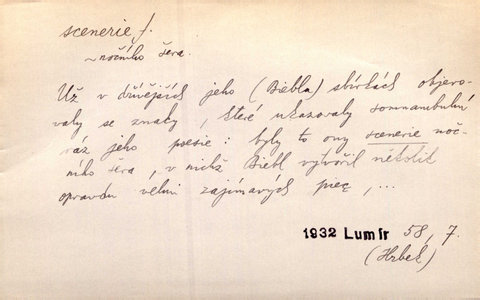 scenerie f.
~ nočního šera.
Už v dřívějších jeho (Biebla) sbírkách objevo-
valy se znaky, které ukazovaly somnambulní
ráz jeho poesie: byly to ony scenerie noč-
ního šera, v nichž Biebl vytvořil několik
opravdu velmi zajímavých prec, ...
1932 Lumír 58, 7.
(Hrbek)